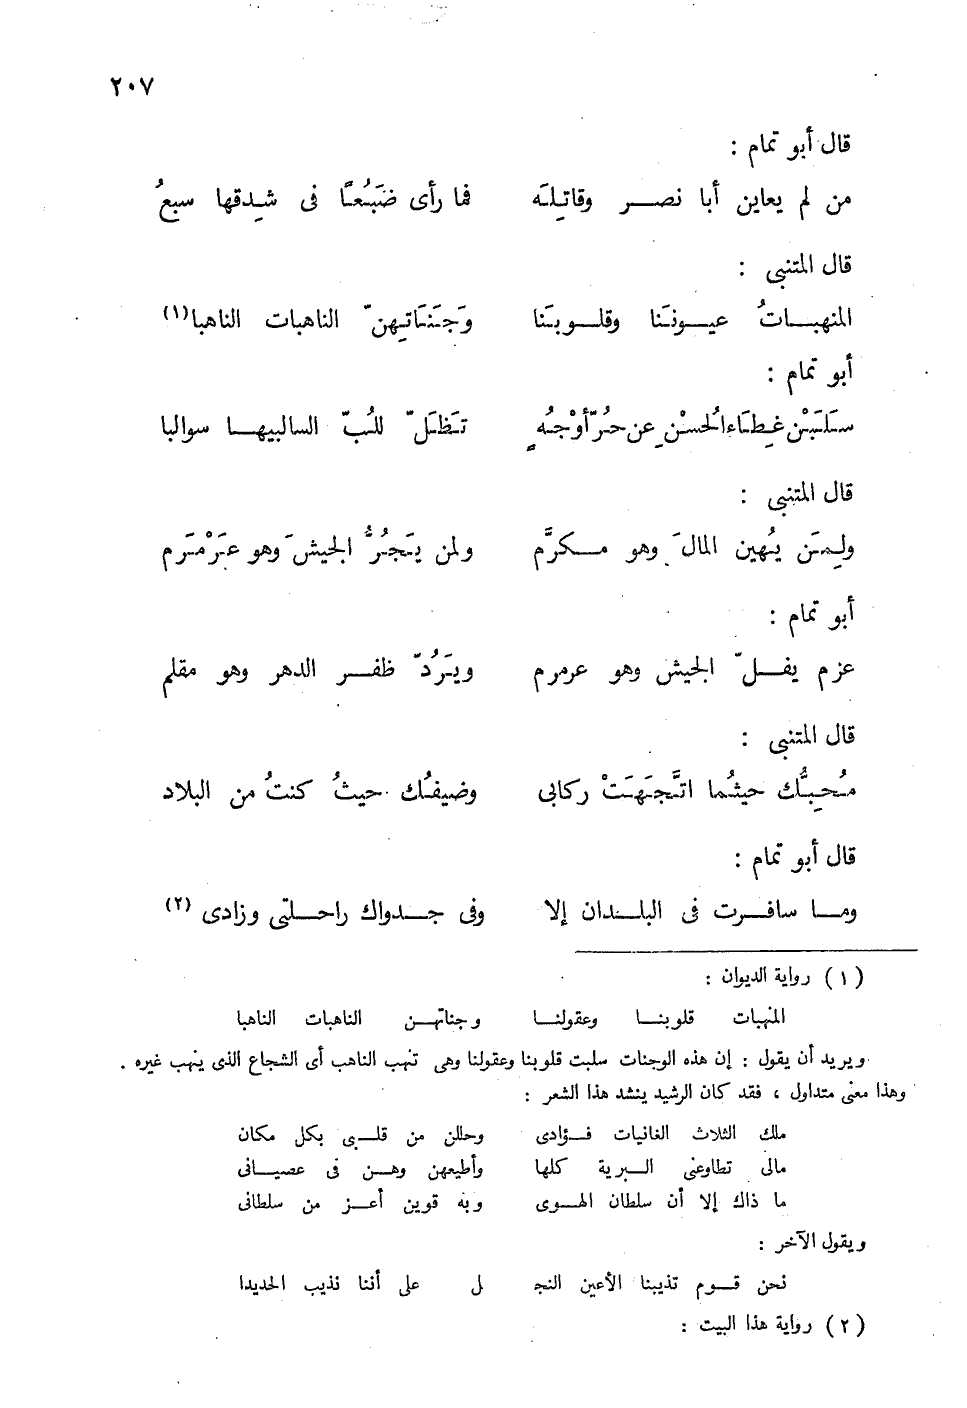 ٢٠٧
قال أبو تمام :
من لم يعاين أبا نصر وقاتِلَه فما رأى ضَبُعًا فى شِدقها سبعُ
قال المتنبى :
المنهباتُ عيونَنا وقلوبَنا وَجَنَاتِهنّ الناهبات الناهبا (١)
أبو تمام :
سَلَبْن غِطاءَ الحُسْنِ عن حُرّ أوْجُهٍ تَظَلّ للُبّ السالبيها سوالبا
قال المتنبى :
ولِمَن يُهين المالَ وهو مكرَّم ولمن يَجُرُّ الجيشَ وهو عَرَمْرَم
أبو تمام :
عزم يفلّ الجيش وهو عرمرم ويَرُدّ ظفر الدهر وهو مقلم
قال المتنبى :
مُحِبُّك حيثُما اتَّجَهَتْ ركابى وضيفُك حيثُ كنتُ من البلاد
قال أبو تمام :
وما سافرت فى البلدان إلا وفى جدواك راحلتى وزادى (٢)
(١) رواية الديوان :
المنهبات قلوبنا وعقولنا وجناتهن الناهبات الناهبا
ويريد أن يقول : إن هذه الوجنات سلبت قلوبنا وعقولنا وهى تنهب الناهب أى الشجاع الذى ينهب غيره .
وهذا معنى متداول ، فقد كان الرشيد ينشد هذا الشعر :
ملك الثلاث الغانيات فؤادى وحللن من قلبى بكل مكان
مالى تطاوعنى البرية كلها وأطيعهن وهن فى عصيانى
ما ذاك إلا أن سلطان الهوى وبه قوين أعز من سلطانى
ويقول الآخر :
نحن قوم تذيبنا الأعين النجـ ل على أننا نذيب الحديدا
(٢) رواية هذا البيت :